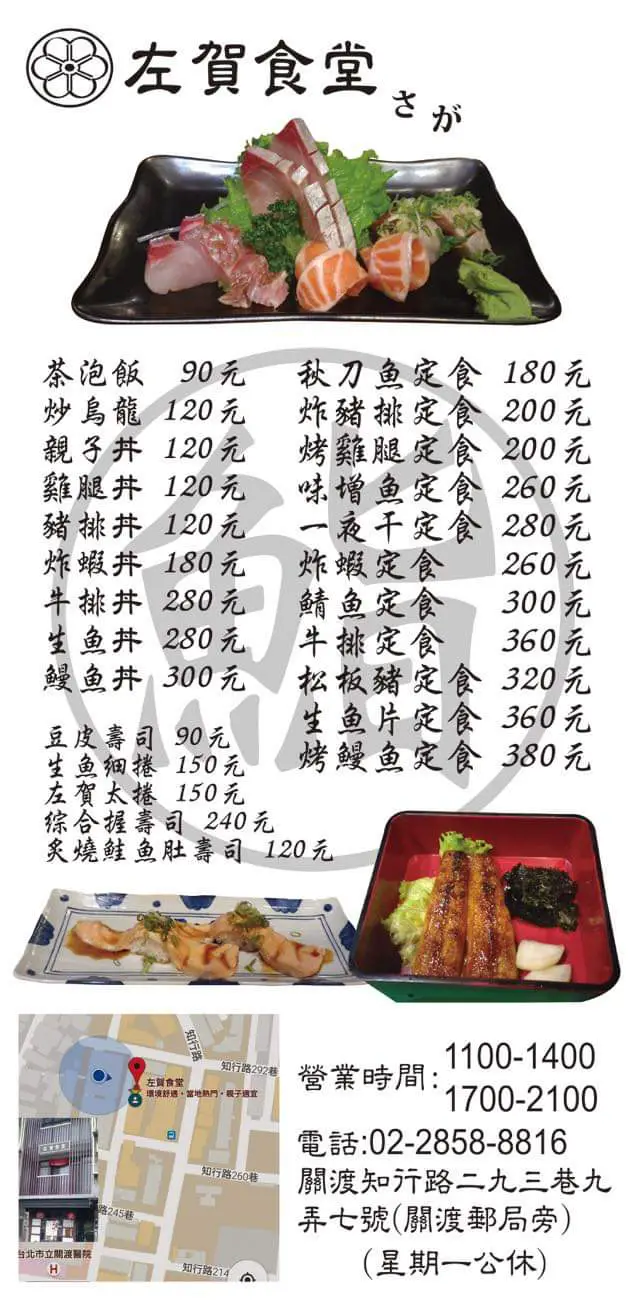 左賀食堂
さが
鮨
茶泡飯 90元
炒烏龍 120元
親子丼 120元
雞腿丼 120元
豬排丼 120元
炸蝦丼 180元
牛排丼 280元
生魚丼 280元
鰻魚丼 300元
秋刀魚定食 180元
炸豬排定食 200元
烤雞腿定食 200元
味增魚定食 260元
一夜干定食 280元
炸蝦定食 260元
鯖魚定食 300元
牛排定食 360元
松板豬定食 320元
生魚片定食 360元
烤鰻魚定食 380元
豆皮壽司 90元
生魚細捲 150元
左賀太捲 150元
綜合握壽司 240元
炙燒鮭魚肚壽司 120元
知行路
知行路292巷
左賀食堂
環境舒適・當地熱門・親子適宜
知行路260巷
路245巷
台北市立關渡醫院
H
知行路214
營業時間:1100-1400
1700-2100
電話:02-2858-8816
關渡知行路二九三巷九
弄七號(關渡郵局旁)
(星期一公休)